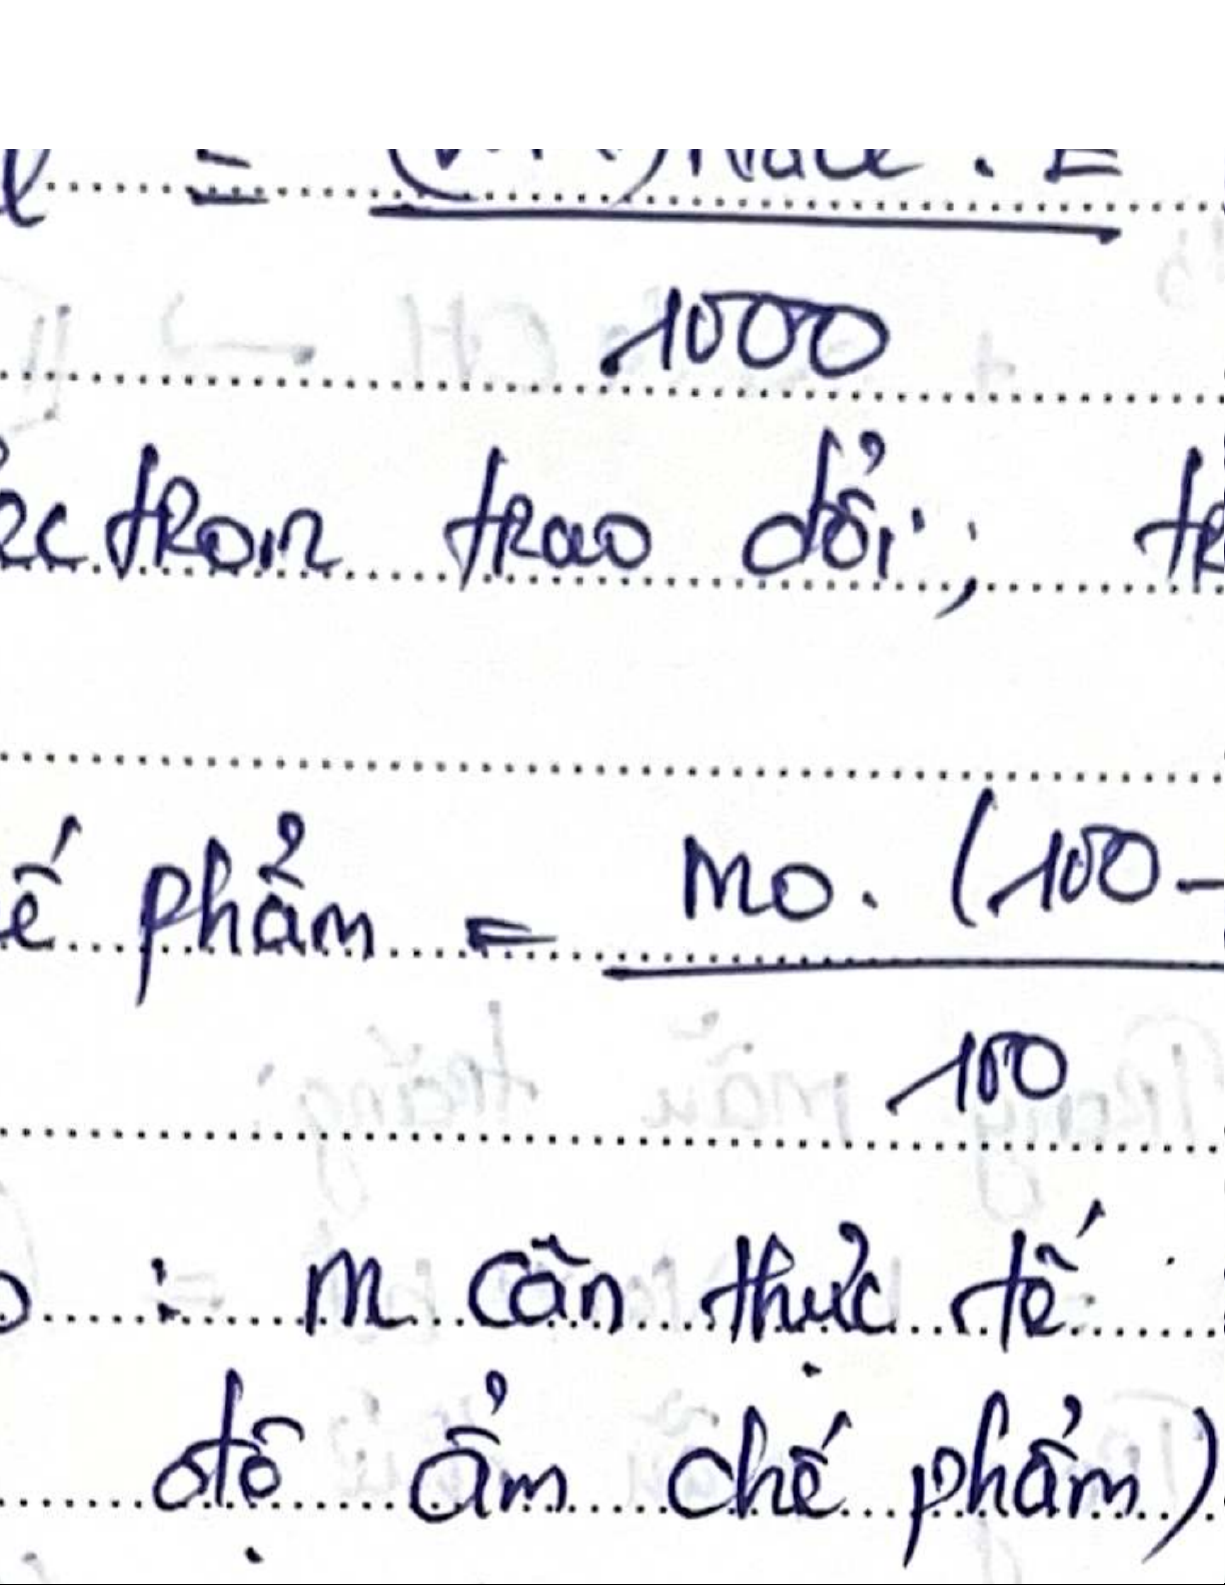 = . E
1000
tron trao đổi ;
phẩm = mo. (100 -
100
: m cân thực tế
độ ẩm chế phẩm)